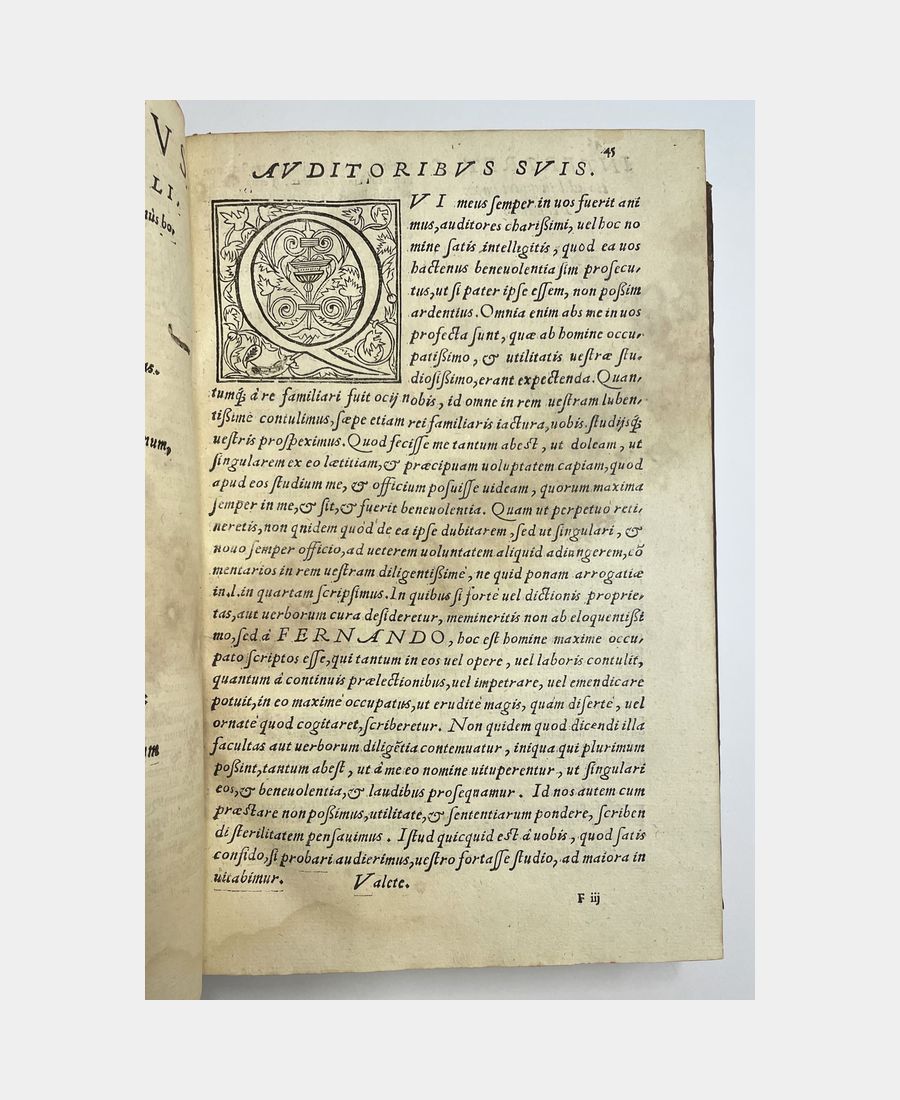 VS
LI.
nũs bo,
us.
num,
um
45
AVDITORIBVS SVIS.
QVI meus ſemper in uos fuerit ani
mus, auditores chariſsimi, uel hoc no
mine ſatis intelligitis, quod ea uos
hactenus beneuolentia ſim proſecu-
tus, ut ſi pater ipſe eſſem, non poſsim
ardentius. Omnia enim abs me in uos
profecta ſunt, quæ ab homine occu-
patiſsimo, & utilitatis ueſtræ ſtu-
dioſiſsimo, erant expectenda. Quan-
tumq́; à re familiari fuit ocij nobis, id omne in rem ueſtram luben-
tiſsimè contulimus, ſæpe etiam rei familiaris iactura, uobis ſtudijsq́;
ueſtris proſpeximus. Quod feciſſe me tantum abeſt, ut doleam, ut
ſingularem ex eo lætitiam, & præcipuam uoluptatem capiam, quod
apud eos ſtudium me, & officium poſuiſſe uideam, quorum maxima
ſemper in me, & ſit, & fuerit beneuolentia. Quam ut perpetuo reti-
neretis, non qnidem quòd de ea ipſe dubitarem, ſed ut ſingulari, &
nouo ſemper officio, ad ueterem uoluntatem aliquid adiungerem, cõ
mentarios in rem ueſtram diligentiſsimè, ne quid ponam arrogatiæ
in.l.in quartam ſcripſimus. In quibus ſi fortè uel dictionis proprie-
tas, aut uerborum cura deſideretur, memineritis non ab eloquentiſsi
mo, ſed à FERNANDO, hoc eſt homine maxime occu-
pato ſcriptos eſſe, qui tantum in eos uel opere, uel laboris contulit,
quantum à continuis prælectionibus, uel impetrare, uel emendicare
potuit, in eo maximè occupatus, ut eruditè magis, quàm diſertè, uel
ornatè quod cogitaret, ſcriberetur. Non quidem quod dicendi illa
facultas aut uerborum diligẽtia contemuatur, iniqua qui plurimum
poſsint, tantum abeſt, ut à me eo nomine uituperentur, ut ſingulari
eos, & beneuolentia, & laudibus proſeqnamur. Id nos autem cum
præſtare non poſsimus, utilitate, & ſententiarum pondere, ſcriben
di ſterilitatem penſauimus. Iſtud quicquid eſt à uobis, quod ſatis
confido, ſi probari audierimus, ueſtro fortaſſe ſtudio, ad maiora in
uitabimur. Valete.
F iij